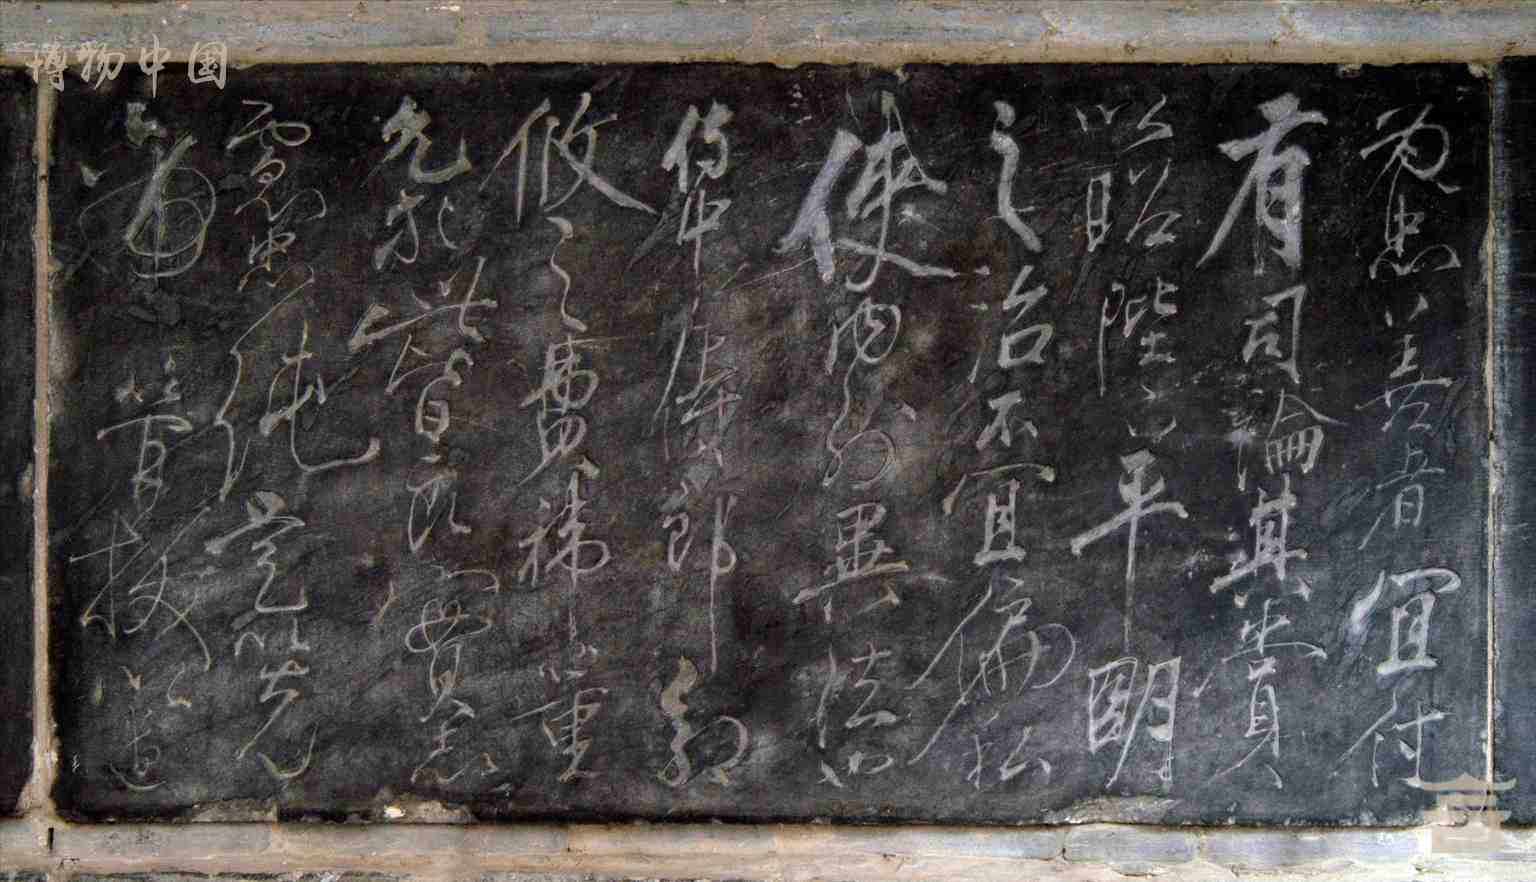 為忠善者宜付
有司論其刑賞
以昭陛下平明
之治不宜偏私
使內外異法也
侍中侍郎郭
攸之費禕董
允等此皆良實志
慮忠純是以先
帝簡拔以遺
博物中国